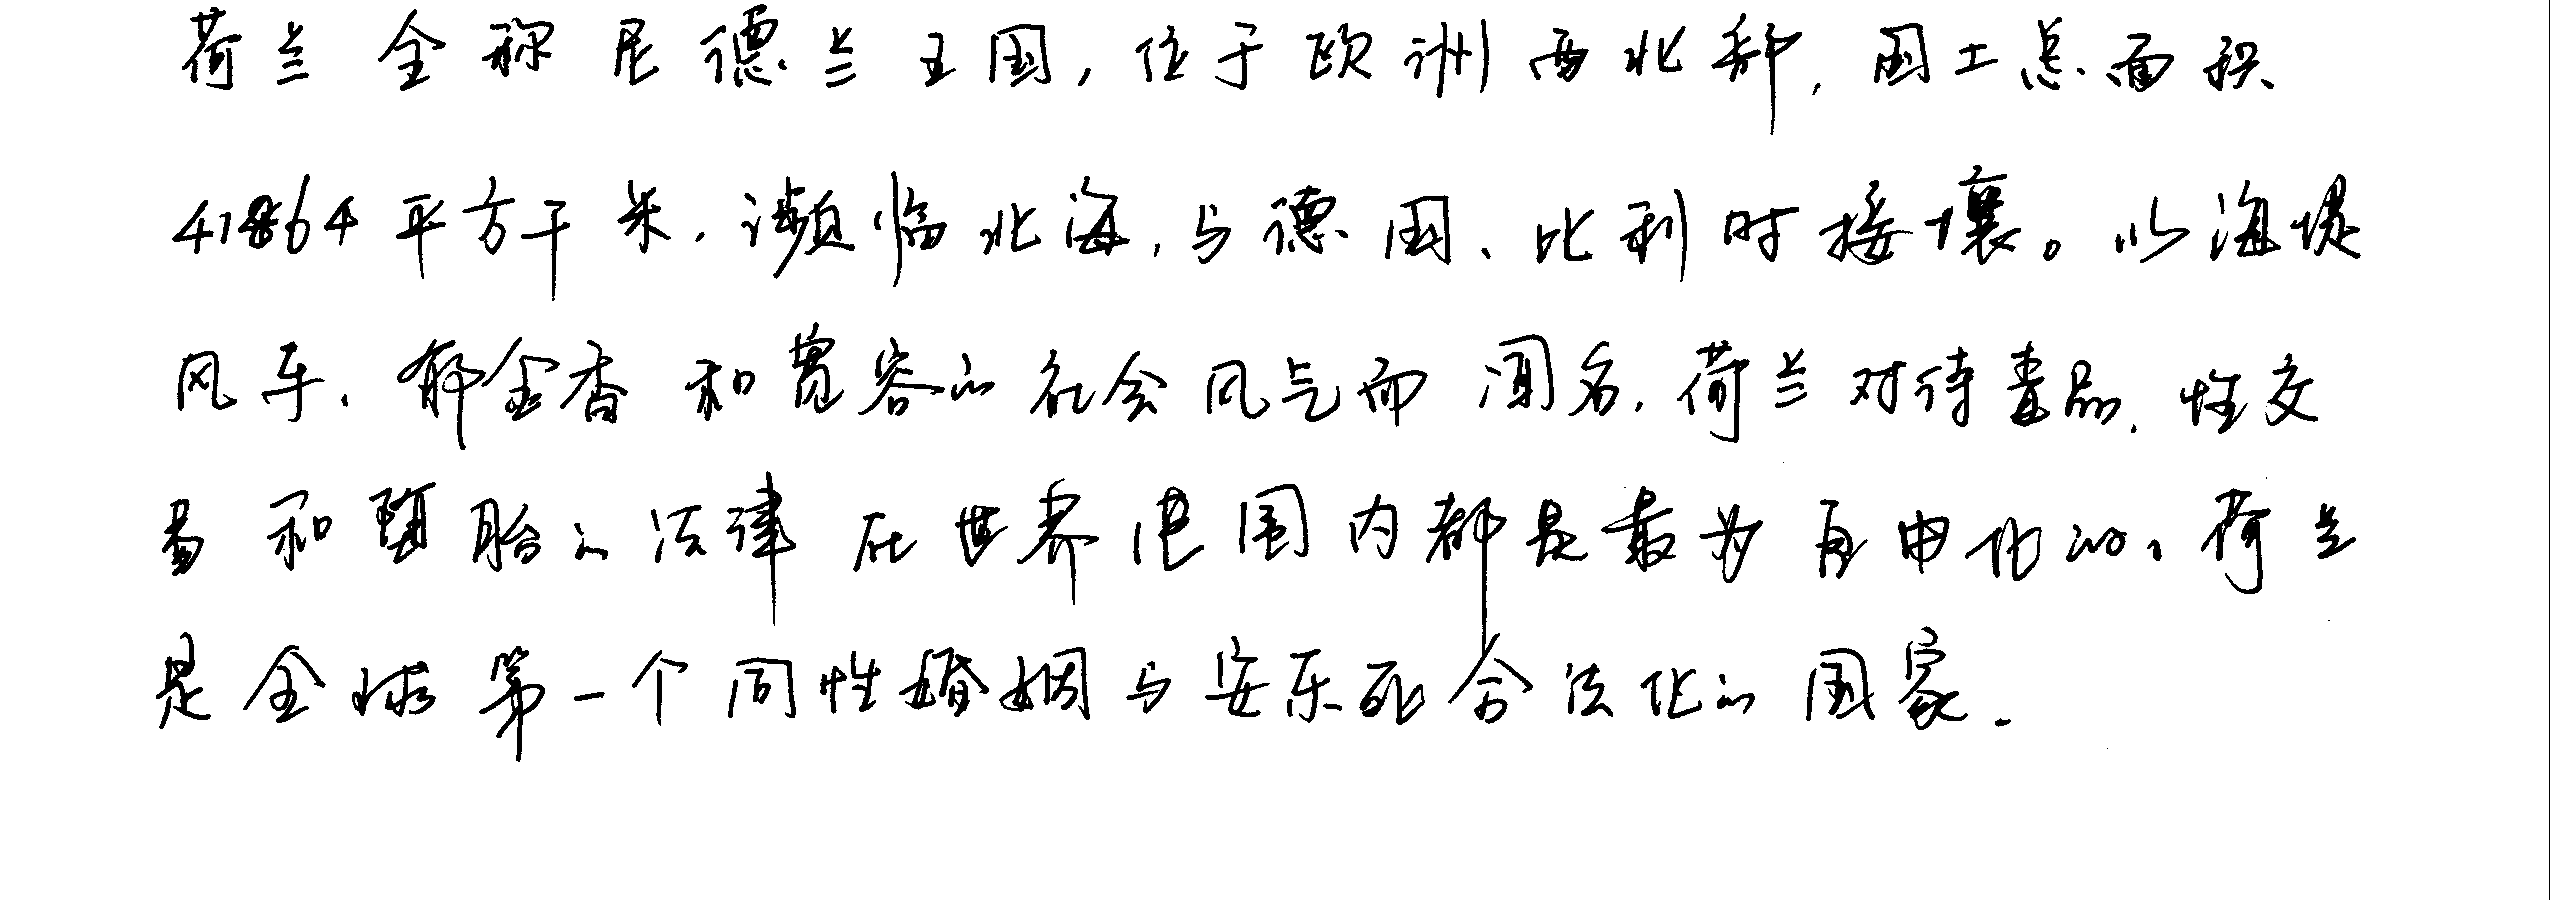 荷兰全称尼德兰王国,位于欧洲西北部,国土总面积
41864平方千米,濒临北海,与德国、比利时接壤。以海堤
风车、郁金香和宽容的社会风气而闻名,荷兰对待毒品、性交
易和堕胎的法律在世界范围内都是最为自由化的,荷兰
是全球第一个同性婚姻与安乐死合法化的国家.